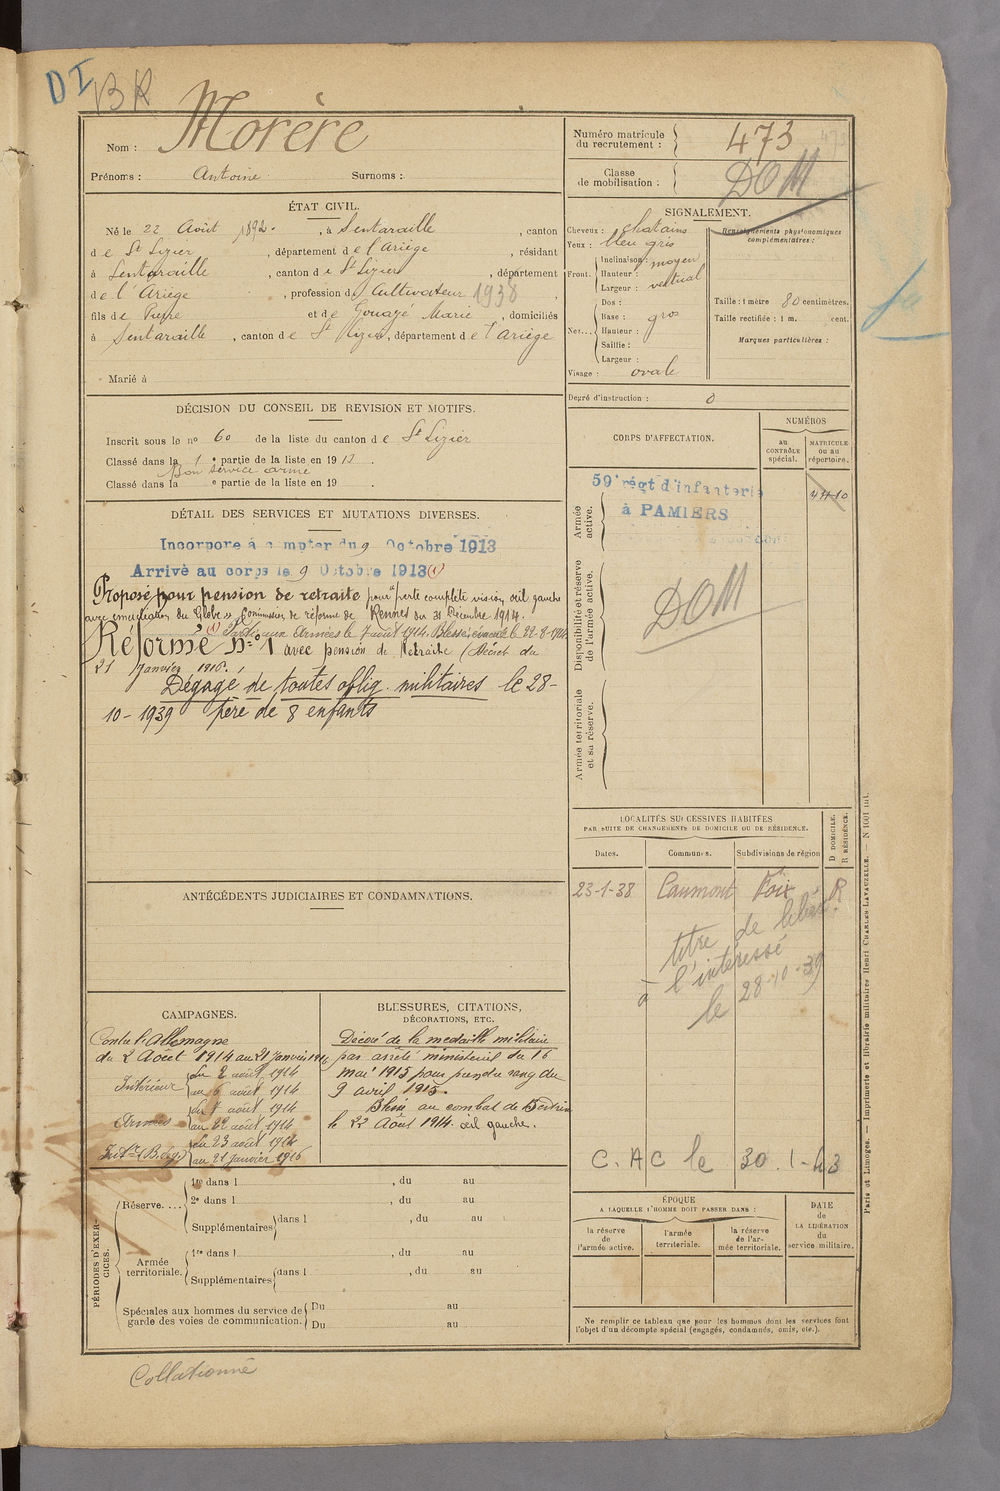 DI
BR
Nom : Morère
Prénoms : Antoine Surnoms :
ÉTAT CIVIL.
Né le 22 Août 1892, à Sentaraille, canton
de St Lizier, département de l'Ariège, résidant
à Sentaraille, canton de St Lizier, département
de l'Ariège, profession de Cultivateur 1938,
fils de Pierre et de Gouazé Marie, domiciliés
à Sentaraille, canton de St Lizier, département de l'Ariège
Marié à
DÉCISION DU CONSEIL DE REVISION ET MOTIFS.
Inscrit sous le no 60 de la liste du canton de St Lizier
Classé dans la 1e partie de la liste en 1913.
Bon service armé
Classé dans la e partie de la liste en 19 .
DÉTAIL DES SERVICES ET MUTATIONS DIVERSES.
Incorporé à compter du 9 Octobre 1913
Arrivé au corps le 9 Octobre 1913 (1)
Proposé pour pension de retraite pour "perte complète vision œil gauche
avec énucléation du Globe" Commission de réforme de Rennes du 31 Décembre 1914.
(1) Parti aux Armées le 7 août 1914. Blessé évacué le 22-8-1914.
Réformé No 1 avec pension de Retraite (Décret du
21 Janvier 1916.
Dégagé de toutes oblig. militaires le 28-
10-1939 père de 8 enfants
ANTÉCÉDENTS JUDICIAIRES ET CONDAMNATIONS.
CAMPAGNES.
Contre l'Allemagne
du 2 Août 1914 au 21 Janvier 1916
Intérieur { du 2 août 1914
au 6 août 1914
Armées { du 7 août 1914
au 22 août 1914
Intr (Bless) { du 23 août 1914
au 21 janvier 1916
BLESSURES, CITATIONS,
DÉCORATIONS, ETC.
Décoré de la médaille militaire
par arrêté ministériel du 16
mai 1915 pour prendre rang du
9 avril 1915.
Blessé au combat de Bertrix
le 22 Août 1914. œil gauche.
PÉRIODES D'EXERCICES.
Réserve.... 1re dans l , du au
2e dans l , du au
Supplémentaires { dans l , du au
Armée territoriale. 1re dans l , du au
Supplémentaires { dans l , du au
Spéciales aux hommes du service de { Du au
garde des voies de communication. { Du au
Collationné
Numéro matricule
du recrutement : 473
Classe
de mobilisation : DOM
SIGNALEMENT.
Cheveux : chatains
Yeux : bleu gris
Front. Inclinaison : moyen
Hauteur :
Largeur : vertical
Nez... Dos :
Base : gros
Hauteur :
Saillie :
Largeur :
Visage : ovale
Renseignements physionomiques
complémentaires :
Taille : 1 mètre 80 centimètres.
Taille rectifiée : 1 m. cent.
Marques particulières :
Degré d'instruction : 0
CORPS D'AFFECTATION.
NUMÉROS
au
CONTRÔLE
spécial.
MATRICULE
ou au
répertoire.
Armée
active.
59e régt d'infanterie
à PAMIERS
Disponibilité et réserve
de l'armée active.
DOM
Armée territoriale
et sa réserve.
LOCALITÉS SUCCESSIVES HABITÉES
PAR SUITE DE CHANGEMENTS DE DOMICILE OU DE RÉSIDENCE.
Dates. Communes. Subdivisions de région
D DOMICILE.
R RÉSIDENCE.
23-1-38 Caumont Foix R
titre de libér.
à l'intéressé
le 28-10-39
C.A C le 30.1-43
ÉPOQUE
A LAQUELLE L'HOMME DOIT PASSER DANS :
la réserve
de
l'armée active.
l'armée
territoriale.
la réserve
de l'ar-
mée territoriale.
DATE
de
LA LIBÉRATION
du
service militaire.
Ne remplir ce tableau que pour les hommes dont les services font
l'objet d'un décompte spécial (engagés, condamnés, omis, etc.).
Paris et Limoges. — Imprimerie et librairie militaires Henri CHARLES-LAVAUZELLE. — N 1001 mi.